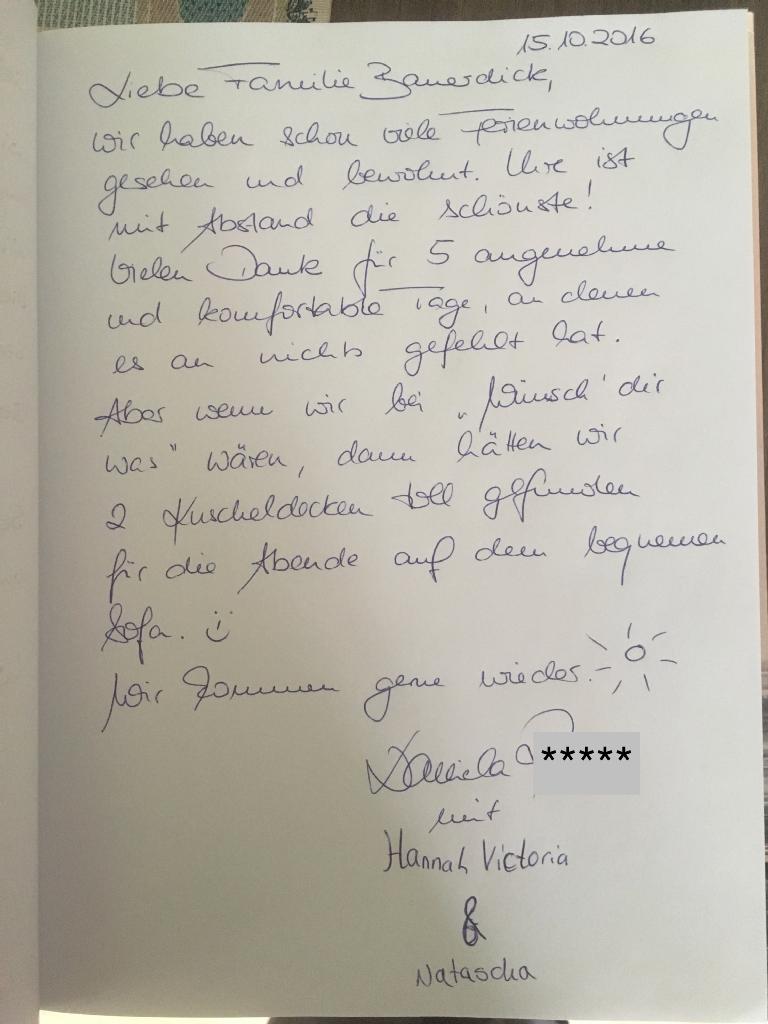 15.10.2016
Liebe Familie Bauerdick,
wir haben schon viele Ferienwohnungen
gesehen und bewohnt. Ihre ist
mit Abstand die schönste!
Vielen Dank für 5 angenehme
und komfortable Tage, an denen
es an nichts gefehlt hat.
Aber wenn wir bei „Wünsch' dir
was" wären, dann hätten wir
2 Kuscheldecken toll gefunden
für die Abende auf dem bequemen
Sofa.
Wir kommen gerne wieder.
Daniela *****
mit
Hannah Victoria
&
Natascha